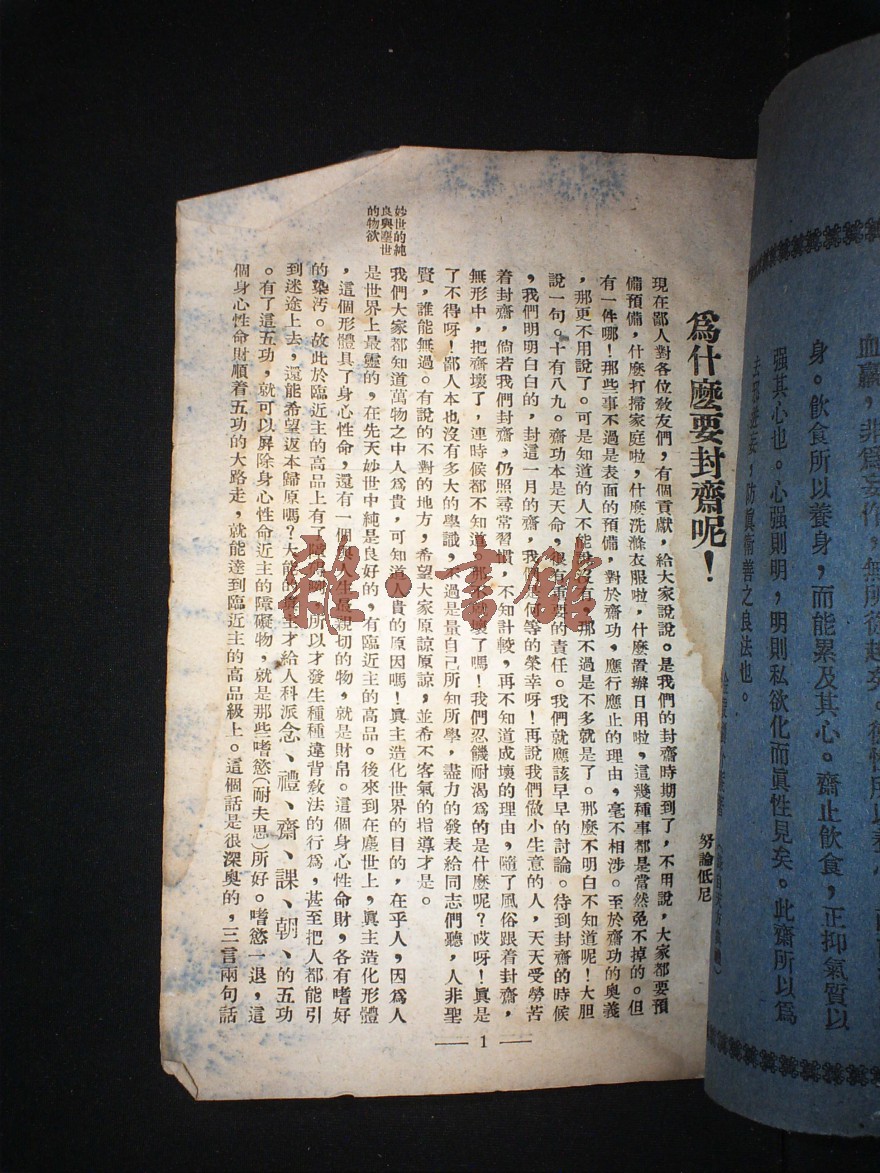 血贏，非爲妄作，無所從起矣。
身。飮食所以養身，而能累及其心。齋止飮食，正抑氣質以
强其心也。心强則明，明則私欲化而眞性見矣。此齋所以爲
去邪近美，防眞衛善之良法也。
爲什麽要封齋呢！
努論低尼
現在鄙人對各位敎友們，有個貢獻，給大家說說。是我們的封齋時期到了，不用說，大家都要預
備預備，什麽打掃家庭啦，什麽洗滌衣服啦，什麽置辦日用啦，這幾種事都是當然免不掉的。但
有一件哪！那些事不過是表面的預備，對於齋功，應行應止的理由，毫不相涉。至於齋功的奧義
，那更不用說了。可是知道的人不能說沒有，那不過是不多就是了。那麽不明白不知道呢！大胆
說一句。十有八九。齋功本是天命，很有重要的責任。我們就應該早早的討論。待到封齋的時候
，我們明明白白的，封這一月的齋，我們何等的榮幸呀！再說我們做小生意的人，天天受勞苦
着封齋，倘若我們封齋，仍照尋常習慣，不知計較，再不知道成壞的理由，隨了風俗跟着封齋，
無形中，把齋壞了，連時候都不知道，那不餓壞了嗎！我們忍饑耐渴爲的是什麽呢？哎呀！眞是
了不得呀！鄙人本也沒有多大的學識，不過是量自己所知所學，盡力的發表給同志們聽，人非聖
賢，誰能無過。有說的不對的地方，希望大家原諒原諒，並希不客氣的指導才是。
妙世的純
良與塵世
的物欲
我們大家都知道萬物之中人爲貴，可知道人貴的原因嗎！眞主造化世界的目的，在乎人，因爲人
是世界上最靈的，在先天妙世中純是良好的，有臨近主的高品。後來到在塵世上，眞主造化形體
，這個形體具了身心性命，還有一個與人生最親切的物，就是財帛。這個身心性命財，各有嗜好
的染汚。故此於臨近主的高品上有了障碍物，所以才發生種種違背敎法的行爲，甚至把人都能引
到迷途上去，還能希望返本歸原嗎？大能的眞主才給人科派念、禮、齋、課、朝、的五功
。有了這五功，就可以屏除身心性命近主的障礙物，就是那些嗜慾(耐夫思)所好。嗜慾一退，這
個身心性命財順着五功的大路走，就能達到臨近主的高品級上。這個話是很深奧的，三言兩句話
— 1 —
雜·書館